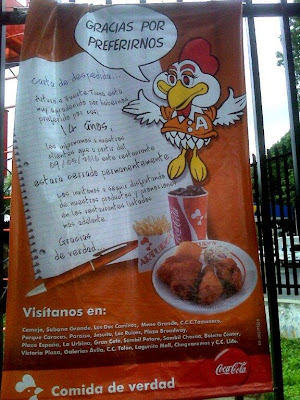 GRACIAS POR
PREFERIRNOS
Carta de despedida...
Arturo's Puente Yanes está
muy agradecido por habernos
preferido por sus
14 años.
Les informamos a nuestros
clientes que a partir del
09/05/2010 este restaurante
estará cerrado permanentemente.
Los invitamos a seguir disfrutando
de nuestros productos y promociones
en los restaurantes listados
más adelante.
Gracias
de verdad...
Coca-Cola
Visítanos en:
Canoejo, Sabana Grande, Los Dos Caminos, Mene Grande, C.C.C.Tamanaco,
Parque Caracas, Paraíso, Jesuita, Los Ruices, Plaza Broadway,
Plaza España, La Urbina, Gran Café, Sambil Potore, Sambil Chacao, Boleíta Center,
Victoria Plaza, Galerías Ávila, C.C. Tolón, Lagunita Mall, Chaguaramos y C.C. Líder.
Coca-Cola
Comida de verdad